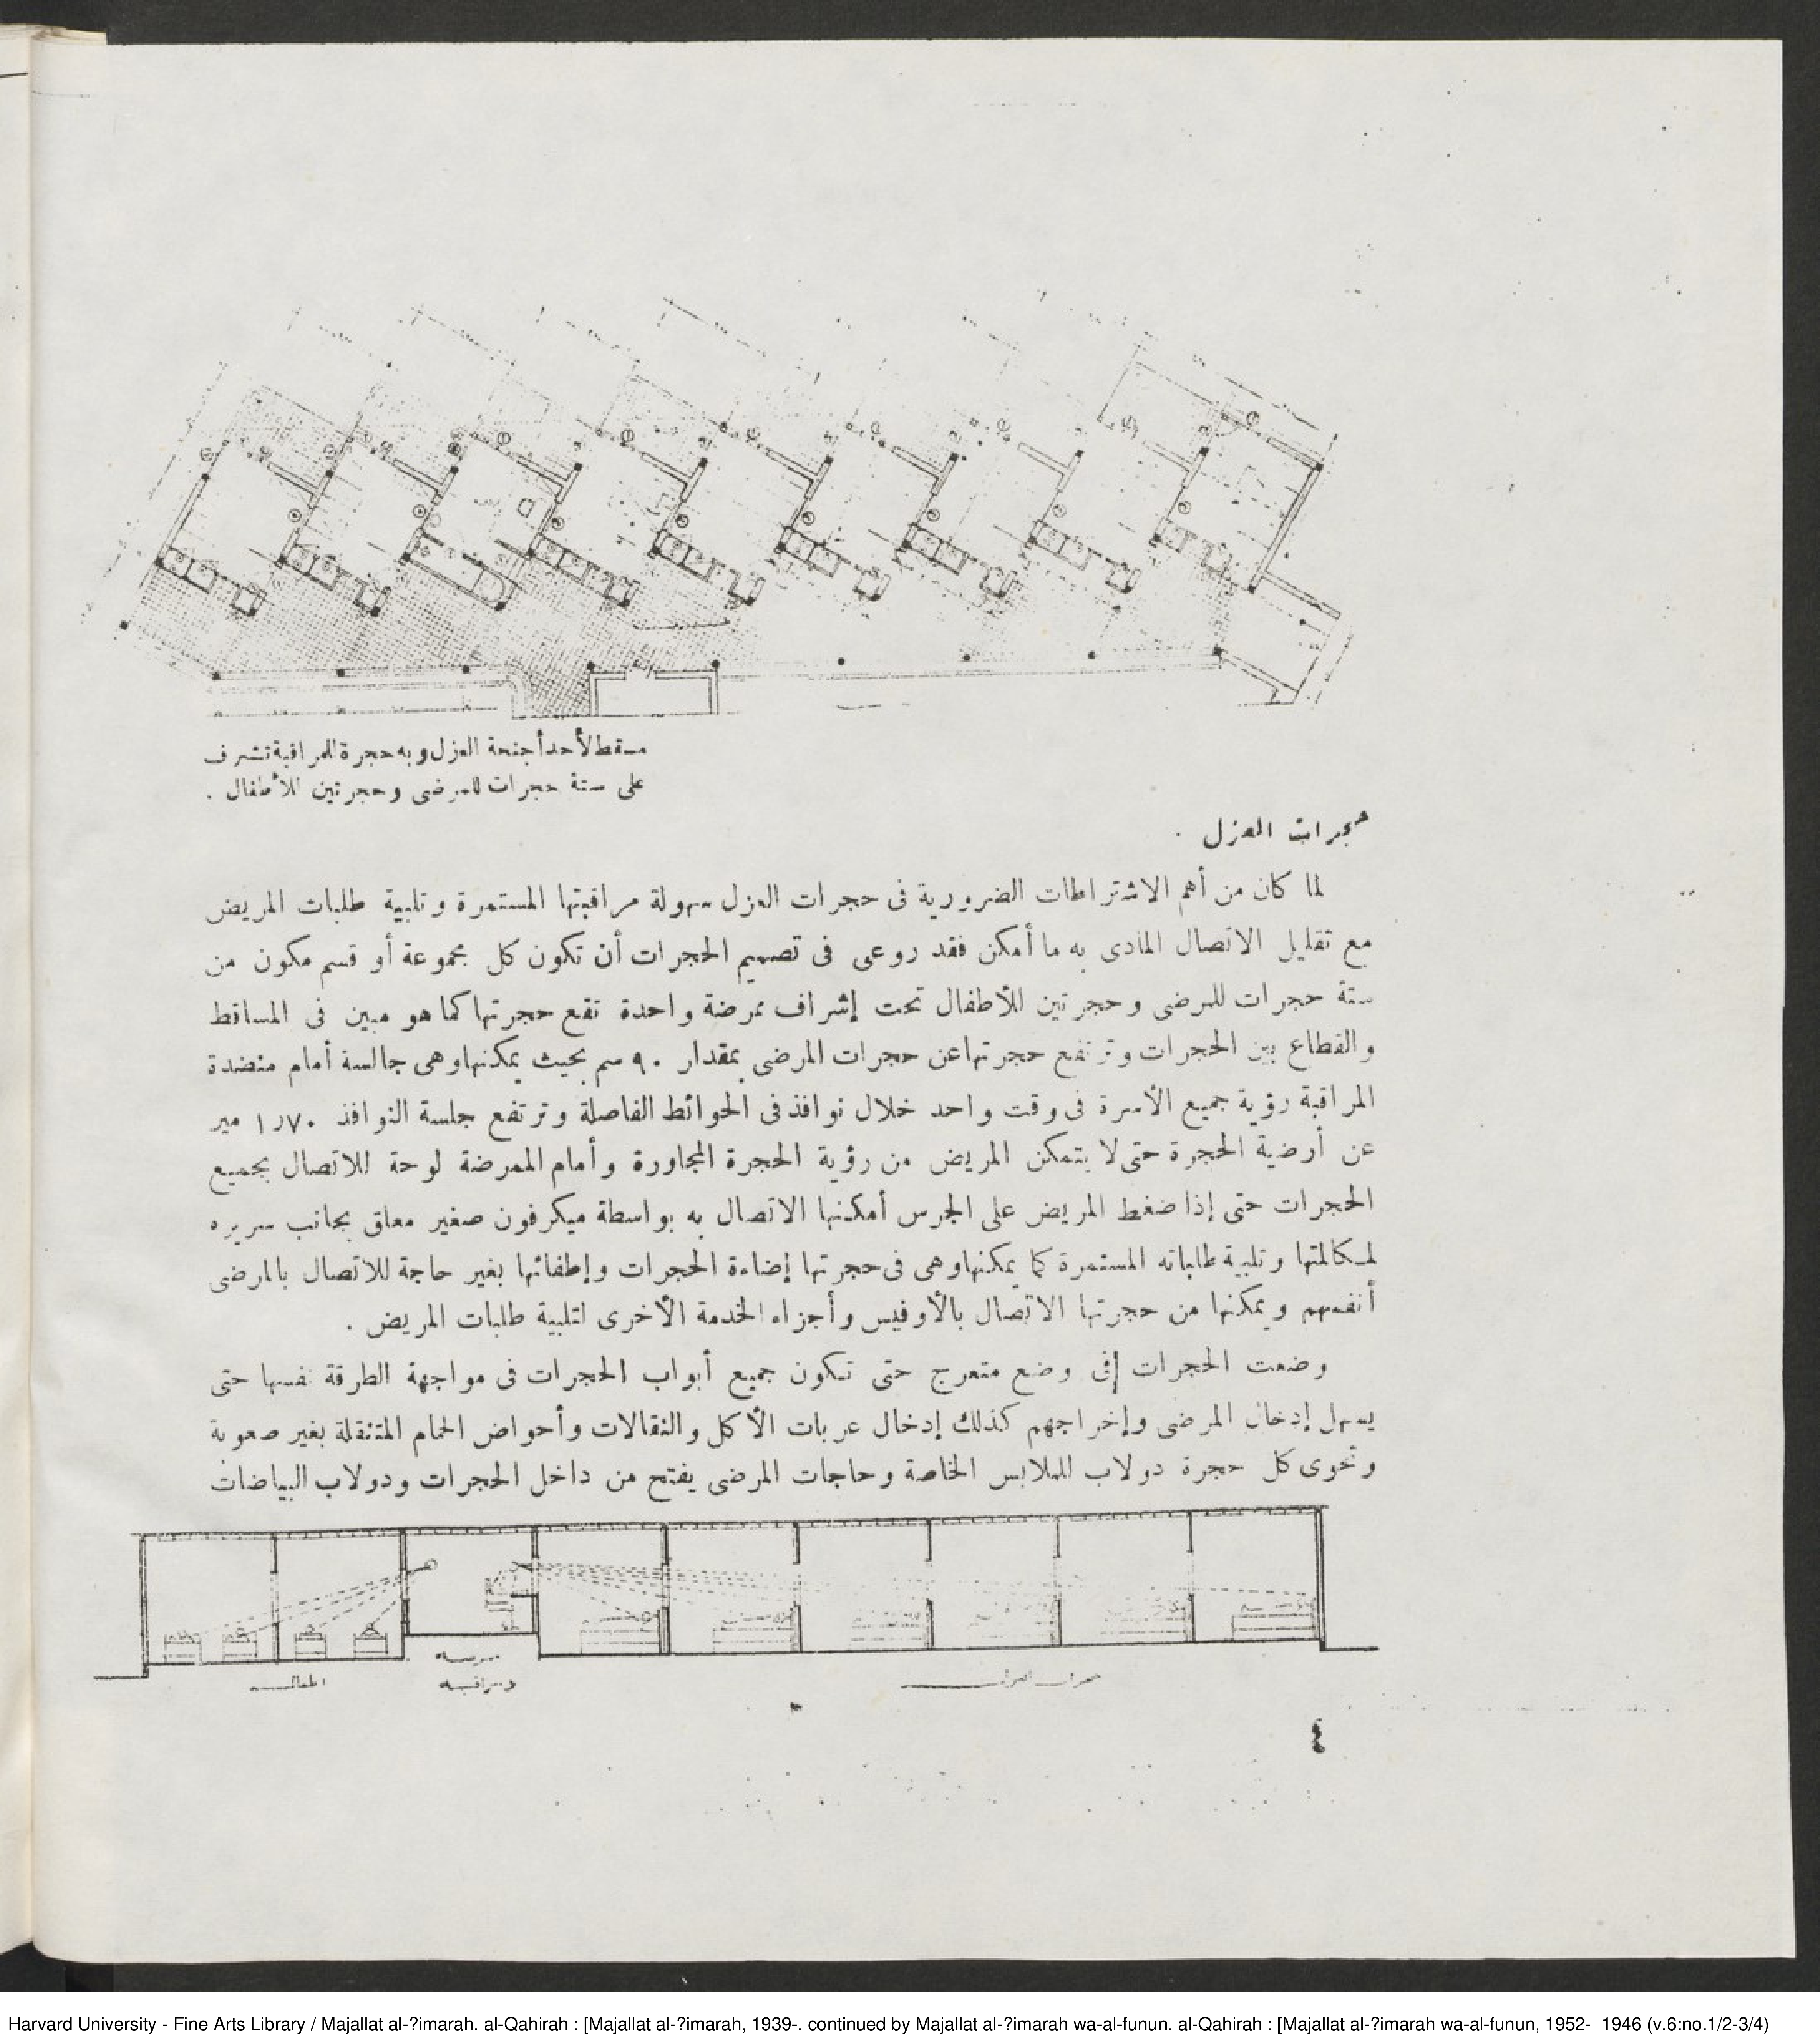 مسقط لأحد أجنحة العزل وبه حجرة للمراقبة تشرف
على ستة حجرات للمرضى وحجرتين للأطفال .
حجرات العزل .
لما كان من أهم الاشتراطات الضرورية فى حجرات العزل سهولة مراقبتها المستمرة وتلبية طلبات المريض
مع تقليل الاتصال المادى به ما أمكن فقد روعى فى تصميم الحجرات أن تكون كل مجموعة أو قسم مكون من
ستة حجرات للمرضى وحجرتين للأطفال تحت إشراف ممرضة واحدة تقع حجرتها كما هو مبين فى المساقط
والقطاع بين الحجرات وترتفع حجرتها عن حجرات المرضى بمقدار ٩٠ سم بحيث يمكنها وهى جالسة أمام منضدة
المراقبة رؤية جميع الأسرة فى وقت واحد خلال نوافذ فى الحوائط الفاصلة وترتفع جلسة النوافذ ١٫٧٠ متر
عن أرضية الحجرة حتى لا يتمكن المريض من رؤية الحجرة المجاورة وأمام الممرضة لوحة للاتصال بجميع
الحجرات حتى إذا ضغط المريض على الجرس أمكنها الاتصال به بواسطة ميكرفون صغير معلق بجانب سريره
لمكالمتها وتلبية طلباته المستمرة كما يمكنها وهى فى حجرتها إضاءة الحجرات وإطفائها بغير حاجة للاتصال بالمرضى
أنفسهم ويمكنها من حجرتها الاتصال بالأوفيس وأجزاء الخدمة الأخرى لتلبية طلبات المريض .
وضعت الحجرات فى وضع متعرج حتى تكون جميع أبواب الحجرات فى مواجهة الطرقة نفسها حتى
يسهل إدخال المرضى وإخراجهم كذلك إدخال عربات الأكل والنقالات وأحواض الحمام المتنقلة بغير صعوبة
وتحوى كل حجرة دولاب للملابس الخاصة وحاجات المرضى يفتح من داخل الحجرات ودولاب البياضات
حجرات العزل
ومراقبة
اطفال
٤
Harvard University - Fine Arts Library / Majallat al-?imarah. al-Qahirah : [Majallat al-?imarah, 1939-. continued by Majallat al-?imarah wa-al-funun. al-Qahirah : [Majallat al-?imarah wa-al-funun, 1952-  1946 (v.6:no.1/2-3/4)